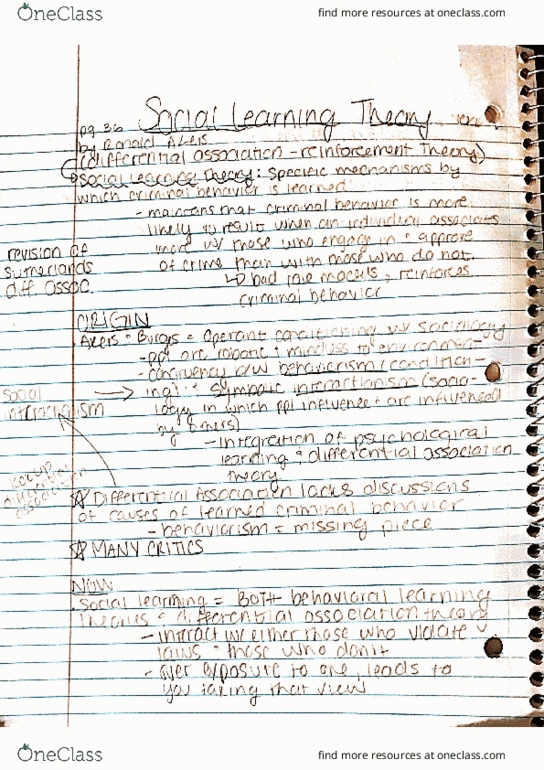 OneClass
find more resources at oneclass.com
Social Learning Theory
pg 36
by Ronald Akers
(differential association - reinforcement theory)
Social Learning Theory: specific mechanisms by
which criminal behavior is learned
- maintains that criminal behavior is more
likely to result when an individual associates
more w/ those who engage in & approve
of crime than with those who do not.
↳ bad role models, reinforces
criminal behavior
revision of
Sutherlands
diff assoc.
ORIGIN
Akers & Burgs = Operant conditioning w/ sociology
- ppl are robotic & mindless to environment
- congruency b/w behaviorism (condition-
ing) & Symbolic interactionism (socio-
logy in which ppl influence & are influenced
by others)
social →
interactionism
- integration of psychological
learning & differential association
theory
look up
differential
association
☆ Differential Association lacks discussions
of causes of learned criminal behavior
- behaviorism = missing piece
☆ MANY CRITICS
NOW
Social learning = Both behavioral learning
theories & differential association theory
- interact w/ either those who violate
laws & those who don't
- over exposure to one, leads to
you taking that view
OneClass
find more resources at oneclass.com